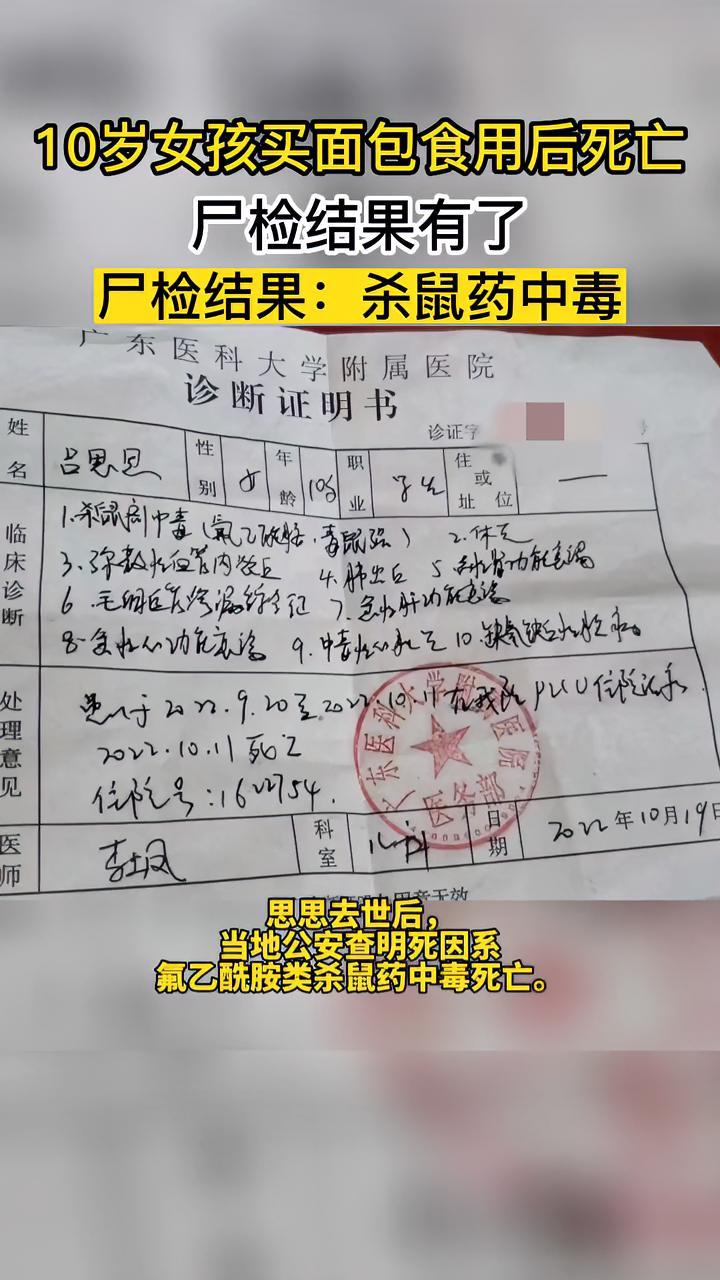 10岁女孩买面包食用后死亡
尸检结果有了
尸检结果：杀鼠药中毒
广东医科大学附属医院
诊断证明书
诊证字 号
姓名 吕思恩 性别 女 年龄 10岁 职业 学生 住址或位 —
临床诊断
1.杀鼠剂中毒(氟乙酰胺、毒鼠强) 2.休克
3.弥散性血管内凝血 4.肺出血 5.急性肾功能衰竭
6.毛细血管渗漏综合征 7.急性肝功能衰竭
8.急性心功能衰竭 9.中毒性心肌炎 10.缺氧缺血性脑病
处理意见
患儿于2022.9.20至2022.10.11在我院PICU住院治疗
2022.10.11死亡
住院号:1622754.
广东医科大学附属医院
医务部
医师 科室 儿科 日期 2022年10月19日
用章无效
思思去世后，
当地公安查明死因系
氟乙酰胺类杀鼠药中毒死亡。